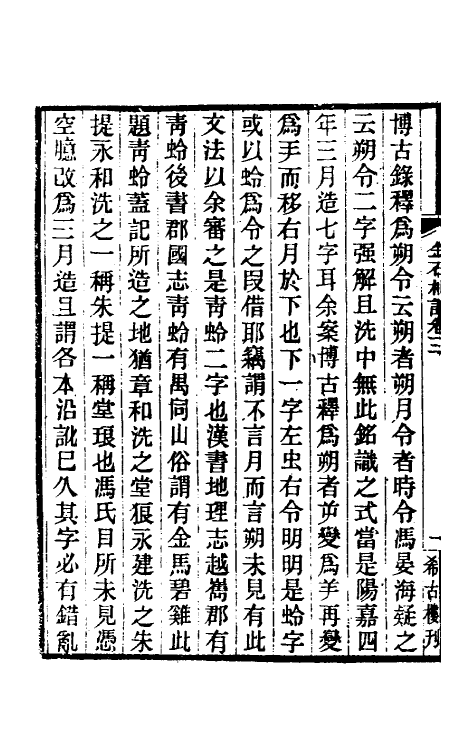 博古錄釋爲朔令云朔者朔月令者時令馮晏海疑之
云朔令二字强解且洗中無此銘識之式當是陽嘉四
年三月造七字耳余案博古釋爲朔者岃變爲手再變
爲手而移右月於下也下一字左虫右令明明是蛉字
或以蛉爲令之叚借耶竊謂不言月而言朔未見有此
文法以余審之是靑蛉二字也漢書地理志越嶲郡有
靑蛉後書郡國志靑蛉有禺同山俗謂有金馬碧雞此
題靑蛉蓋記所造之地猶章和洗之堂狼永建洗之朱
提永和洗之一稱朱提一稱堂琅也馮氏目所未見憑
空臆改爲三月造且謂各本沿訛已久其字必有錯亂
卷三
二
希古樓刊